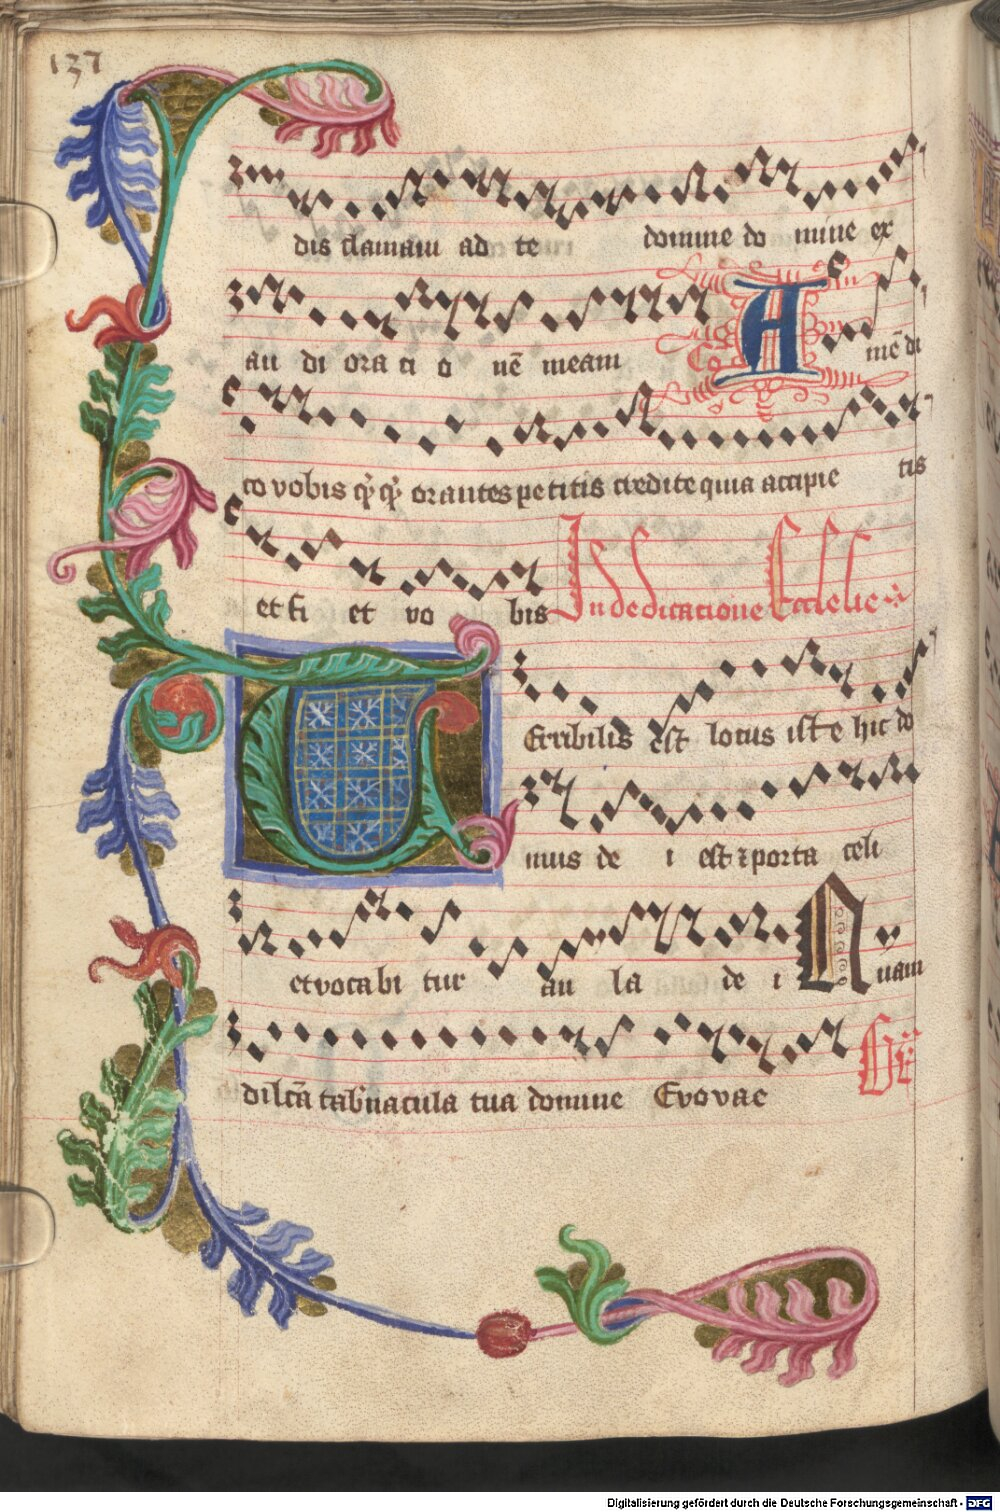 137
dis clamam ad te domine do mine ex
au di ora ti o nē meam A mē di
co vobis q̄ q̄ orantes petitis credite quia accipie tis
et fi et vo bis In dedicatione Ecclesie
Terribilis est locus iste hic do
mus de i est et porta celi
et vocabi tur au la de i Quam
dilcā tab'nacula tua domine Evovae
Digitalisierung gefördert durch die Deutsche Forschungsgemeinschaft - DFG